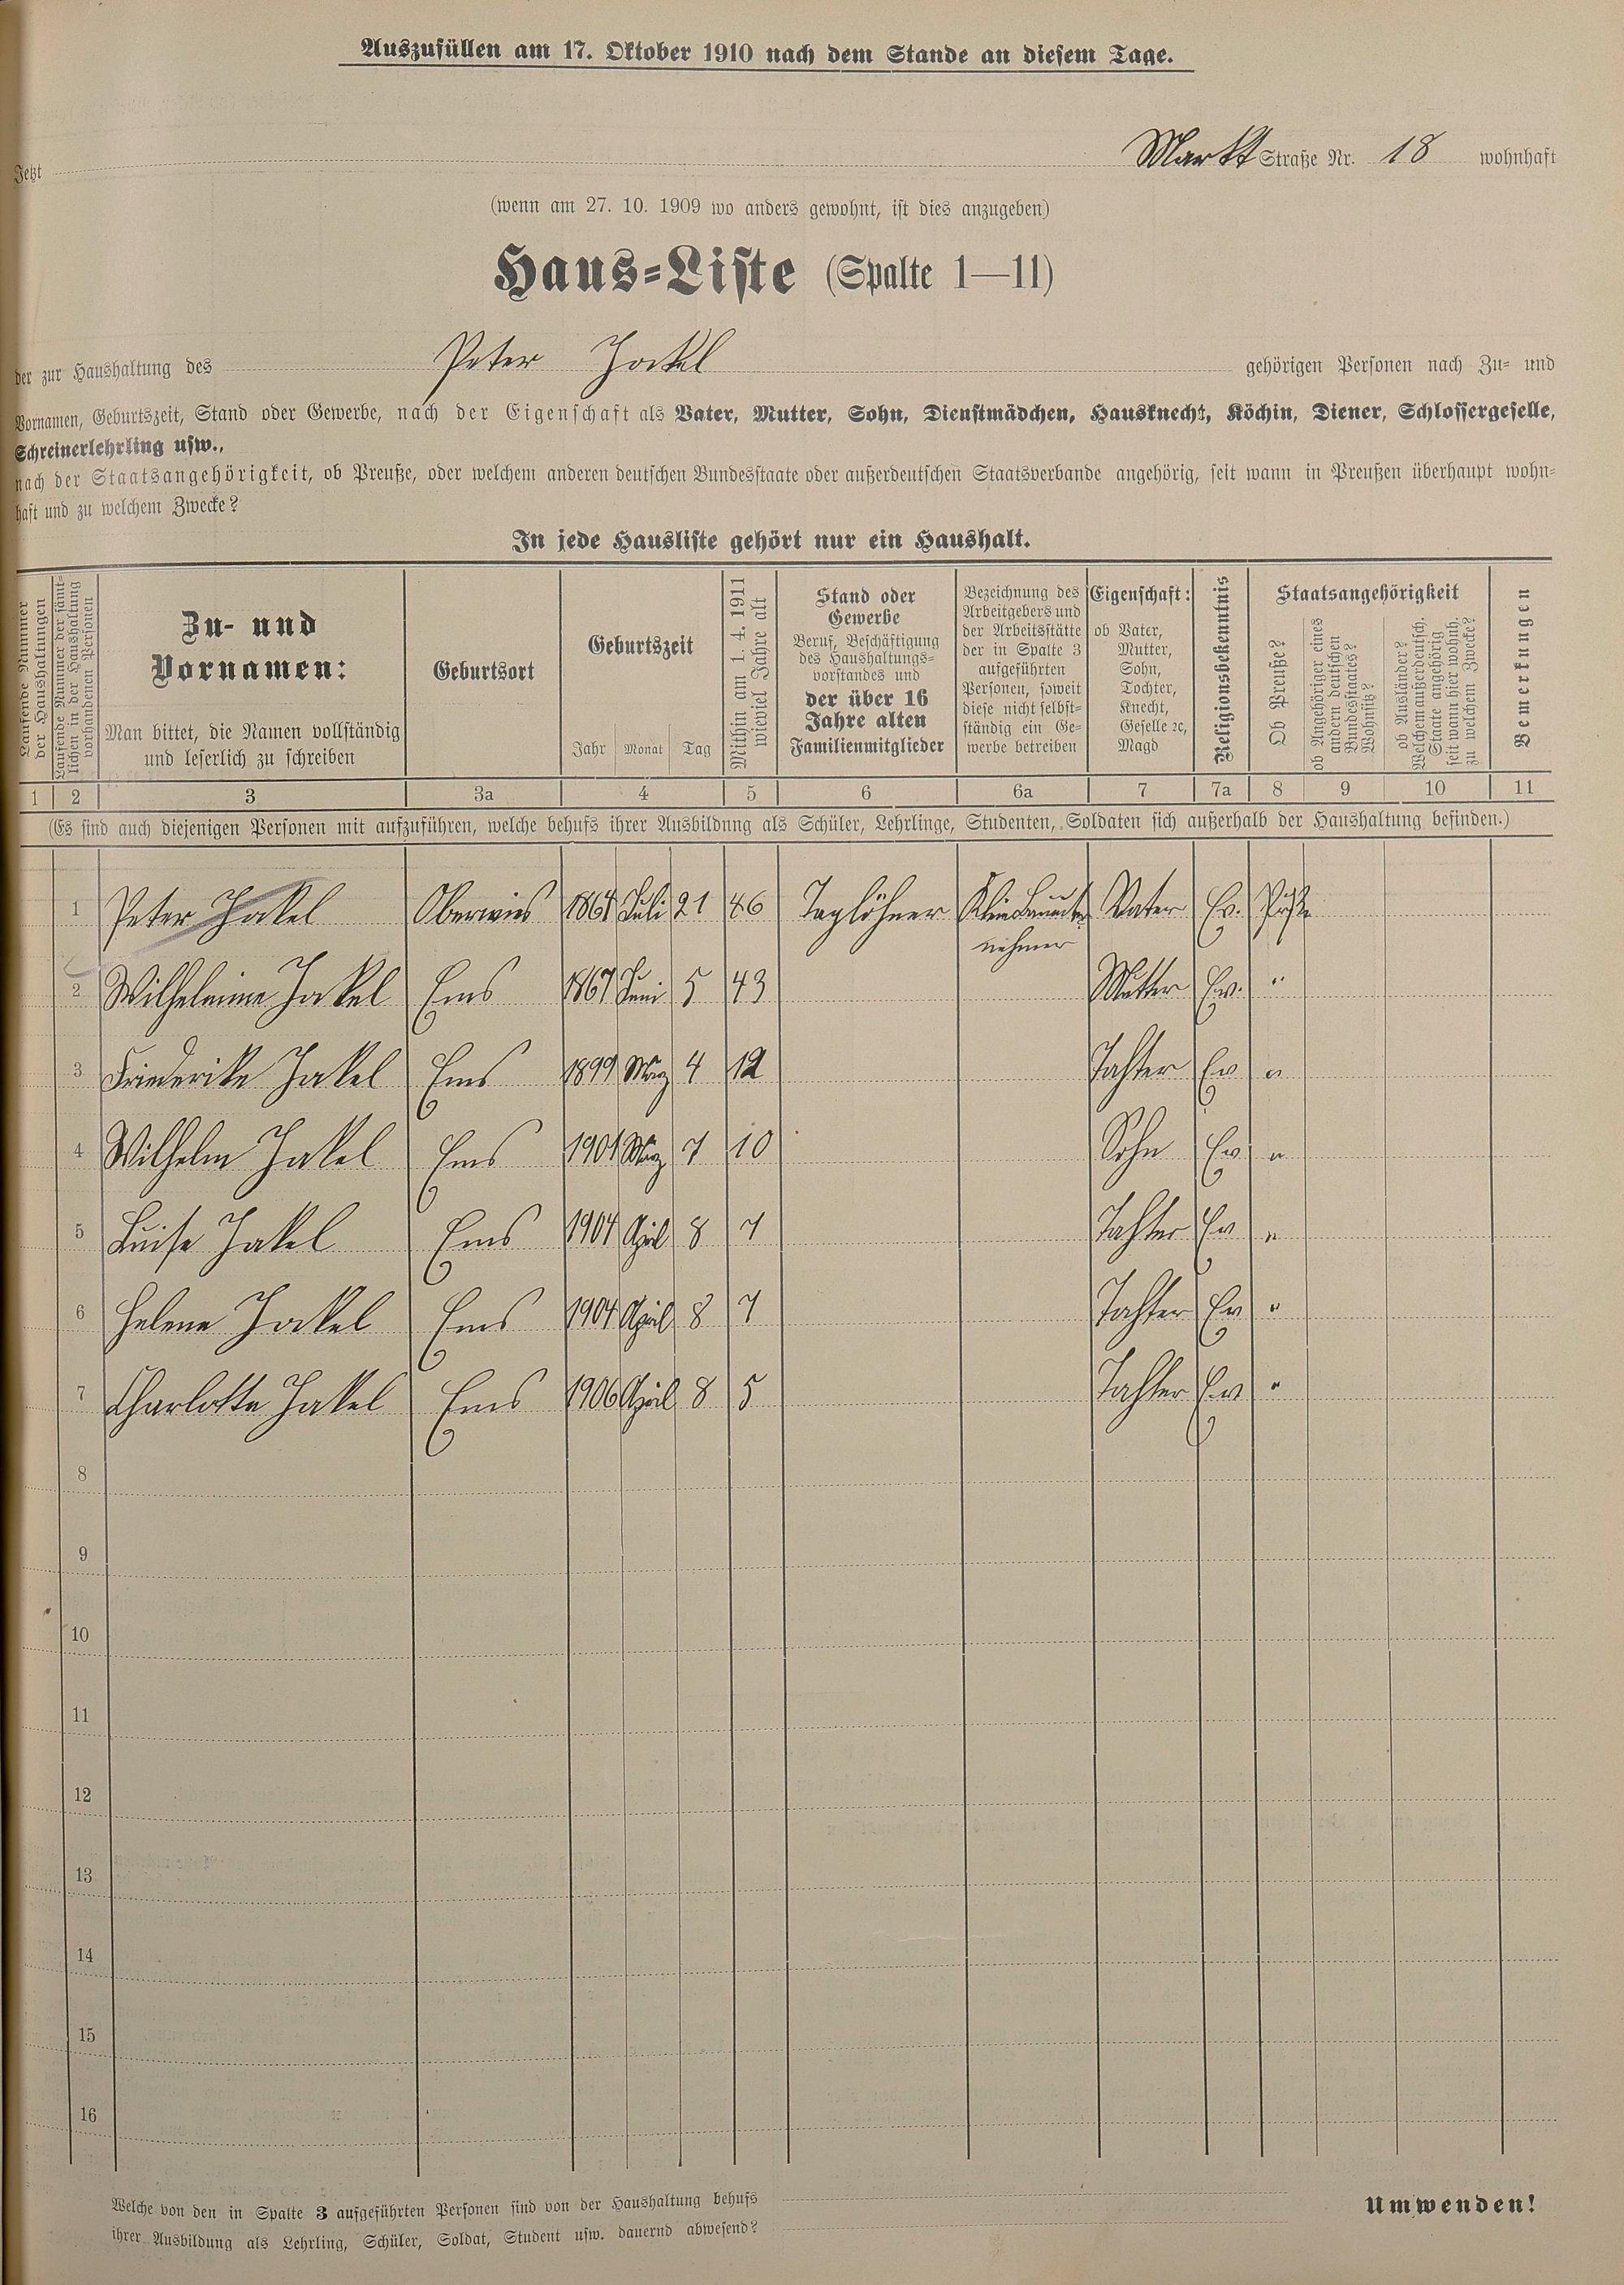 Auszufüllen am 17. Oktober 1910 nach dem Stande an diesem Tage.
Jetzt Markt Straße Nr. 18 wohnhaft
(wenn am 27. 10. 1909 wo anders gewohnt, ist dies anzugeben)
Haus=Liste (Spalte 1—11)
der zur Haushaltung des Peter Jackel gehörigen Personen nach Zu= und
Vornamen, Geburtszeit, Stand oder Gewerbe, nach der Eigenschaft als Vater, Mutter, Sohn, Dienstmädchen, Hausknecht, Köchin, Diener, Schlossergeselle,
Schreinerlehrling usw.,
nach der Staatsangehörigkeit, ob Preuße, oder welchem anderen deutschen Bundesstaate oder außerdeutschen Staatsverbande angehörig, seit wann in Preußen überhaupt wohn=
haft und zu welchem Zwecke?
In jede Hausliste gehört nur ein Haushalt.
Laufende Nummer
der Haushaltungen
Laufende Nummer der sämt=
lichen in der Haushaltung
vorhandenen Personen
Zu- und
Vornamen:
Man bittet, die Namen vollständig
und leserlich zu schreiben
Geburtsort
Geburtszeit
Jahr Monat Tag
Mithin am 1. 4. 1911
wieviel Jahre alt
Stand oder
Gewerbe
Beruf, Beschäftigung
des Haushaltungs=
vorstandes und
der über 16
Jahre alten
Familienmitglieder
Bezeichnung des
Arbeitgebers und
der Arbeitsstätte
der in Spalte 3
aufgeführten
Personen, soweit
diese nicht selbst=
ständig ein Ge=
werbe betreiben
Eigenschaft:
ob Vater,
Mutter,
Sohn,
Tochter,
Knecht,
Geselle ꝛc,
Magd
Religionsbekenntnis
Staatsangehörigkeit
Ob Preuße?
ob Angehöriger eines
andern deutschen
Bundesstaates?
Wohnsitz?
ob Ausländer?
Welchem außerdeutsch.
Staate angehörig
seit wann hier wohnh.
zu welchem Zwecke?
Bemerkungen
1 2 3 3a 4 5 6 6a 7 7a 8 9 10 11
(Es sind auch diejenigen Personen mit aufzuführen, welche behufs ihrer Ausbildung als Schüler, Lehrlinge, Studenten, Soldaten sich außerhalb der Haushaltung befinden.)
1 Peter Jakel Oberwies 1864 Juli 21 46 Taglöhner Vater Ev.
nehmer
2 Wilhelmine Jakel Ems 1867 Juni 5 43 Mutter Ev. "
3 Friederike Jakel Ems 1899 März 4 12 Tahter Ev "
4 Wilhelm Jakel Ems 1901 März 7 10 Sohn Ev "
5 Luise Jakel Ems 1904 April 8 7 Tahter Ev "
6 Helene Jakel Ems 1904 April 8 7 Tahter Ev "
7 Charlotte Jakel Ems 1906 April 8 5 Tahter Ev "
8
9
10
11
12
13
14
15
16
Welche von den in Spalte 3 aufgeführten Personen sind von der Haushaltung behufs
ihrer Ausbildung als Lehrling, Schüler, Soldat, Student usw. dauernd abwesend?
Umwenden!